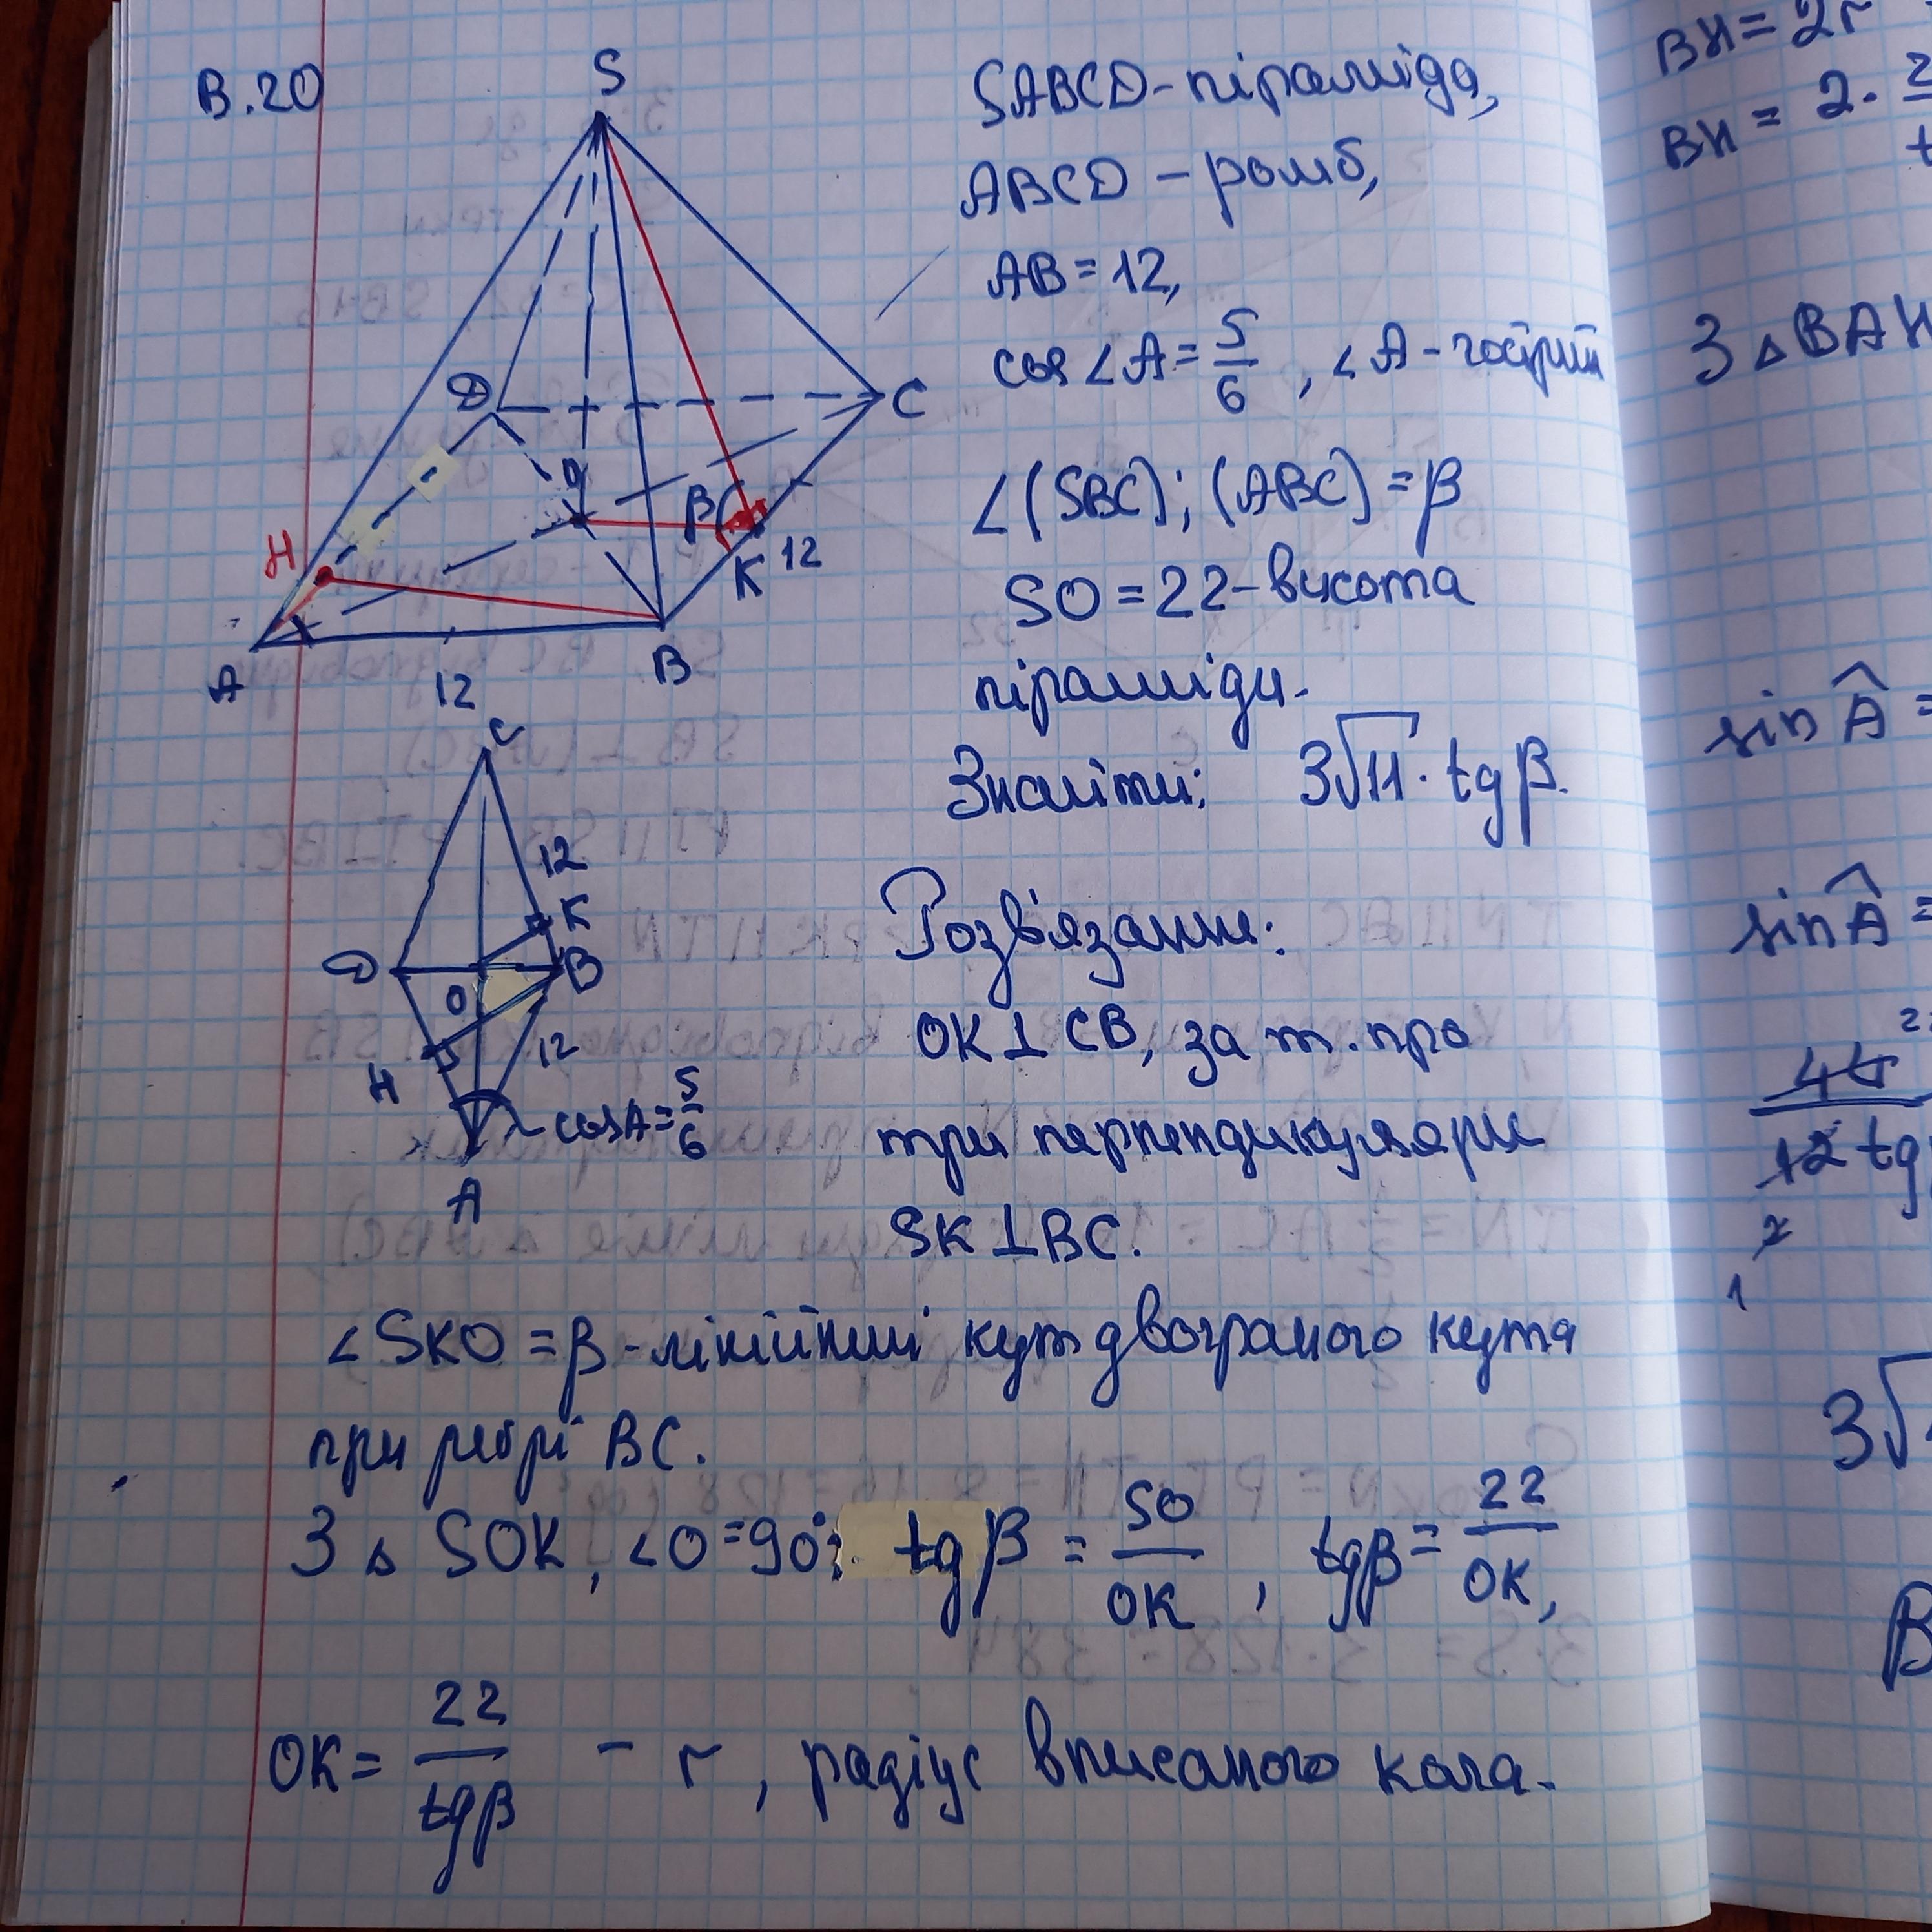 В.20
S
D
C
O
H
β
K
12
A
12
B
SABCD-піраміда,
ABCD - ромб,
AB = 12,
cos∠A = 5/6 , ∠A - гострий
∠(SBC); (ABC) = β
SO = 22 - висота
піраміди.
Знайти: 3√11 · tgβ.
C
12
K
D
B
O
12
H
cosA = 5/6
A
Розв'язання:
OK⊥CB, за т. про
три перпендикуляри
SK⊥BC.
∠SKO = β - лінійний кут двогранного кута
при ребрі BC.
З △ SOK, ∠O = 90°; tgβ = SO/OK , tgβ = 22/OK,
OK = 22/tgβ - r, радіус вписаного кола.
BH = 2r
BH = 2 ·
З △ BAH
sin Â =
sin Â =
44
12 tg
2
1
3√